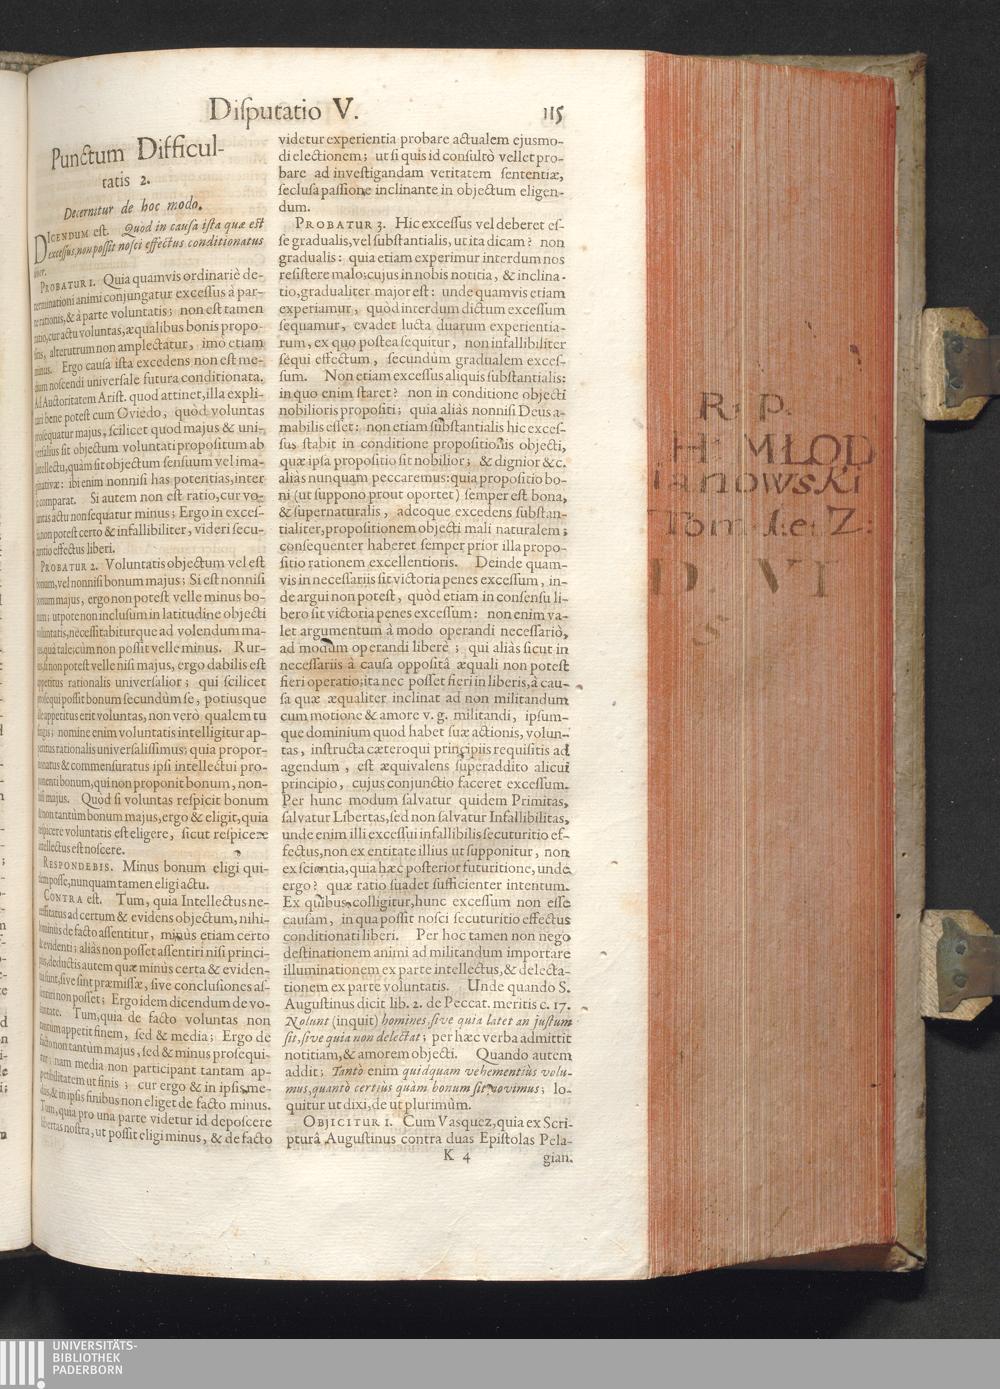 Disputatio V. 115
Punctum Difficul-
tatis 2.
Decernitur de hoc modo.
DICENDUM est. Quod in causa ista quæ est
excessus, non possit nosci effectus conditionatus
liber.
PROBATUR 1. Quia quamvis ordinariè de-
terminationi animi conjungatur excessus à par-
te rationis, & à parte voluntatis; non est tamen
ratio, cur actu voluntas, æqualibus bonis propo-
sitis, alterutrum non amplectatur, imò etiam
minus. Ergo causa ista excedens non est me-
dium noscendi universale futura conditionata.
Ad Auctoritatem Arist. quod attinet, illa expli-
cari bene potest cum Oviedo, quòd voluntas
prosequatur majus, scilicet quod majus & uni-
versalius sit objectum voluntati propositum ab
intellectu, quàm sit objectum sensuum vel ima-
ginativæ: ibi enim nonnisi has potentias, inter
se comparat. Si autem non est ratio, cur vo-
luntas actu non sequatur minus; Ergo in exces-
su, non potest certo & infallibiliter, videri secu-
turitio effectus liberi.
PROBATUR 2. Voluntatis objectum vel est
bonum, vel nonnisi bonum majus; Si est nonnisi
bonum majus, ergo non potest velle minus bo-
num; utpote non inclusum in latitudine objecti
voluntatis, necessitabiturque ad volendum ma-
jus, quà tale; cùm non possit velle minus. Rur-
sus, si non potest velle nisi majus, ergo dabilis est
appetitus rationalis universalior; qui scilicet
prosequi possit bonum secundùm se, potiusque
ille appetitus erit voluntas, non verò qualem tu
fingis; nomine enim voluntatis intelligitur ap-
petitus rationalis universalissimus; quia propor-
tionatus & commensuratus ipsi intellectui pro-
ponenti bonum, qui non proponit bonum, non-
nisi majus. Quòd si voluntas respicit bonum
& non tantùm bonum majus, ergo & eligit, quia
respicere voluntatis est eligere, sicut respicere
intellectus est noscere.
RESPONDEBIS. Minus bonum eligi qui-
dem posse, nunquam tamen eligi actu.
CONTRA est. Tum, quia Intellectus ne-
cessitatus ad certum & evidens objectum, nihi-
lominùs de facto assentitur, minùs etiam certo
& evidenti; aliàs non posset assentiri nisi princi-
piis, deductis autem quæ minùs certa & eviden-
tia sunt, sive sint præmissæ, sive conclusiones as-
sentiri non posset; Ergo idem dicendum de vo-
luntate. Tum, quia de facto voluntas non
tantum appetit finem, sed & media; Ergo de
facto non tantùm majus, sed & minus prosequi-
tur; nam media non participant tantam ap-
petibilitatem ut finis; cur ergo & in ipsis me-
diis, & in ipsis finibus non eliget de facto minus.
Tum, quia pro una parte videtur id deposcere
libertas nostra, ut possit eligi minus, & de facto
videtur experientia probare actualem ejusmo-
di electionem; ut si quis id consultò vellet pro-
bare ad investigandam veritatem sententiæ,
seclusa passione inclinante in objectum eligen-
dum.
PROBATUR 3. Hic excessus vel deberet es-
se gradualis, vel substantialis, ut ita dicam? non
gradualis: quia etiam experimur interdum nos
resistere malo; cujus in nobis notitia, & inclina-
tio, gradualiter major est: unde quamvis etiam
experiamur, quòd interdum dictum excessum
sequamur, evadet lucta duarum experientia-
rum, ex quo postea sequitur, non infallibiliter
sequi effectum, secundùm gradualem exces-
sum. Non etiam excessus aliquis substantialis:
in quo enim staret? non in conditione objecti
nobilioris propositi; quia aliàs nonnisi Deus a-
mabilis esset: non etiam substantialis hic exces-
sus stabit in conditione propositionis objecti,
quæ ipsa propositio sit nobilior; & dignior &c.
aliàs nunquam peccaremus: quia propositio bo-
ni (ut suppono prout oportet) semper est bona,
& supernaturalis, adeoque excedens substan-
tialiter, propositionem objecti mali naturalem;
consequenter haberet semper prior illa propo-
sitio rationem excellentioris. Deinde quam-
vis in necessariis sit victoria penes excessum, in-
de argui non potest, quòd etiam in consensu li-
bero sit victoria penes excessum: non enim va-
let argumentum à modo operandi necessariò,
ad modum operandi liberè; qui aliàs sicut in
necessariis à causa opposità æquali non potest
fieri operatio; ita nec posset fieri in liberis, à cau-
sa quæ æqualiter inclinat ad non militandum
cum motione & amore v. g. militandi, ipsum-
que dominium quod habet suæ actionis, volun-
tas, instructa cæteroqui principiis requisitis ad
agendum, est æquivalens superaddito alicui
principio, cujus conjunctio faceret excessum.
Per hunc modum salvatur quidem Primitas,
salvatur Libertas, sed non salvatur Infallibilitas,
unde enim illi excessui infallibilis secuturitio ef-
fectus, non ex entitate illius ut supponitur, non
ex scientia, quia hæc posterior futuritione, unde
ergo? quæ ratio suadet sufficienter intentum.
Ex quibus colligitur, hunc excessum non esse
causam, in qua possit nosci secuturitio effectus
conditionati liberi. Per hoc tamen non nego
destinationem animi ad militandum importare
illuminationem ex parte intellectus, & delecta-
tionem ex parte voluntatis. Unde quando S.
Augustinus dicit lib. 2. de Peccat. meritis c. 17.
Nolunt (inquit) homines, sive quia latet an justum
sit, sive quia non delectat; per hæc verba admittit
notitiam, & amorem objecti. Quando autem
addit; Tantò enim quidquam vehementiùs volu-
mus, quantò certius quàm bonum sit novimus; lo-
quitur ut dixi, de ut plurimùm.
OBJICITUR 1. Cum Vasquez, quia ex Scri-
pturâ Augustinus contra duas Epistolas Pela-
K 4 gian.
R: P.
H MŁOD
ianowski
Tom 1. et 2:
D. VI
UNIVERSITÄTS-
BIBLIOTHEK
PADERBORN